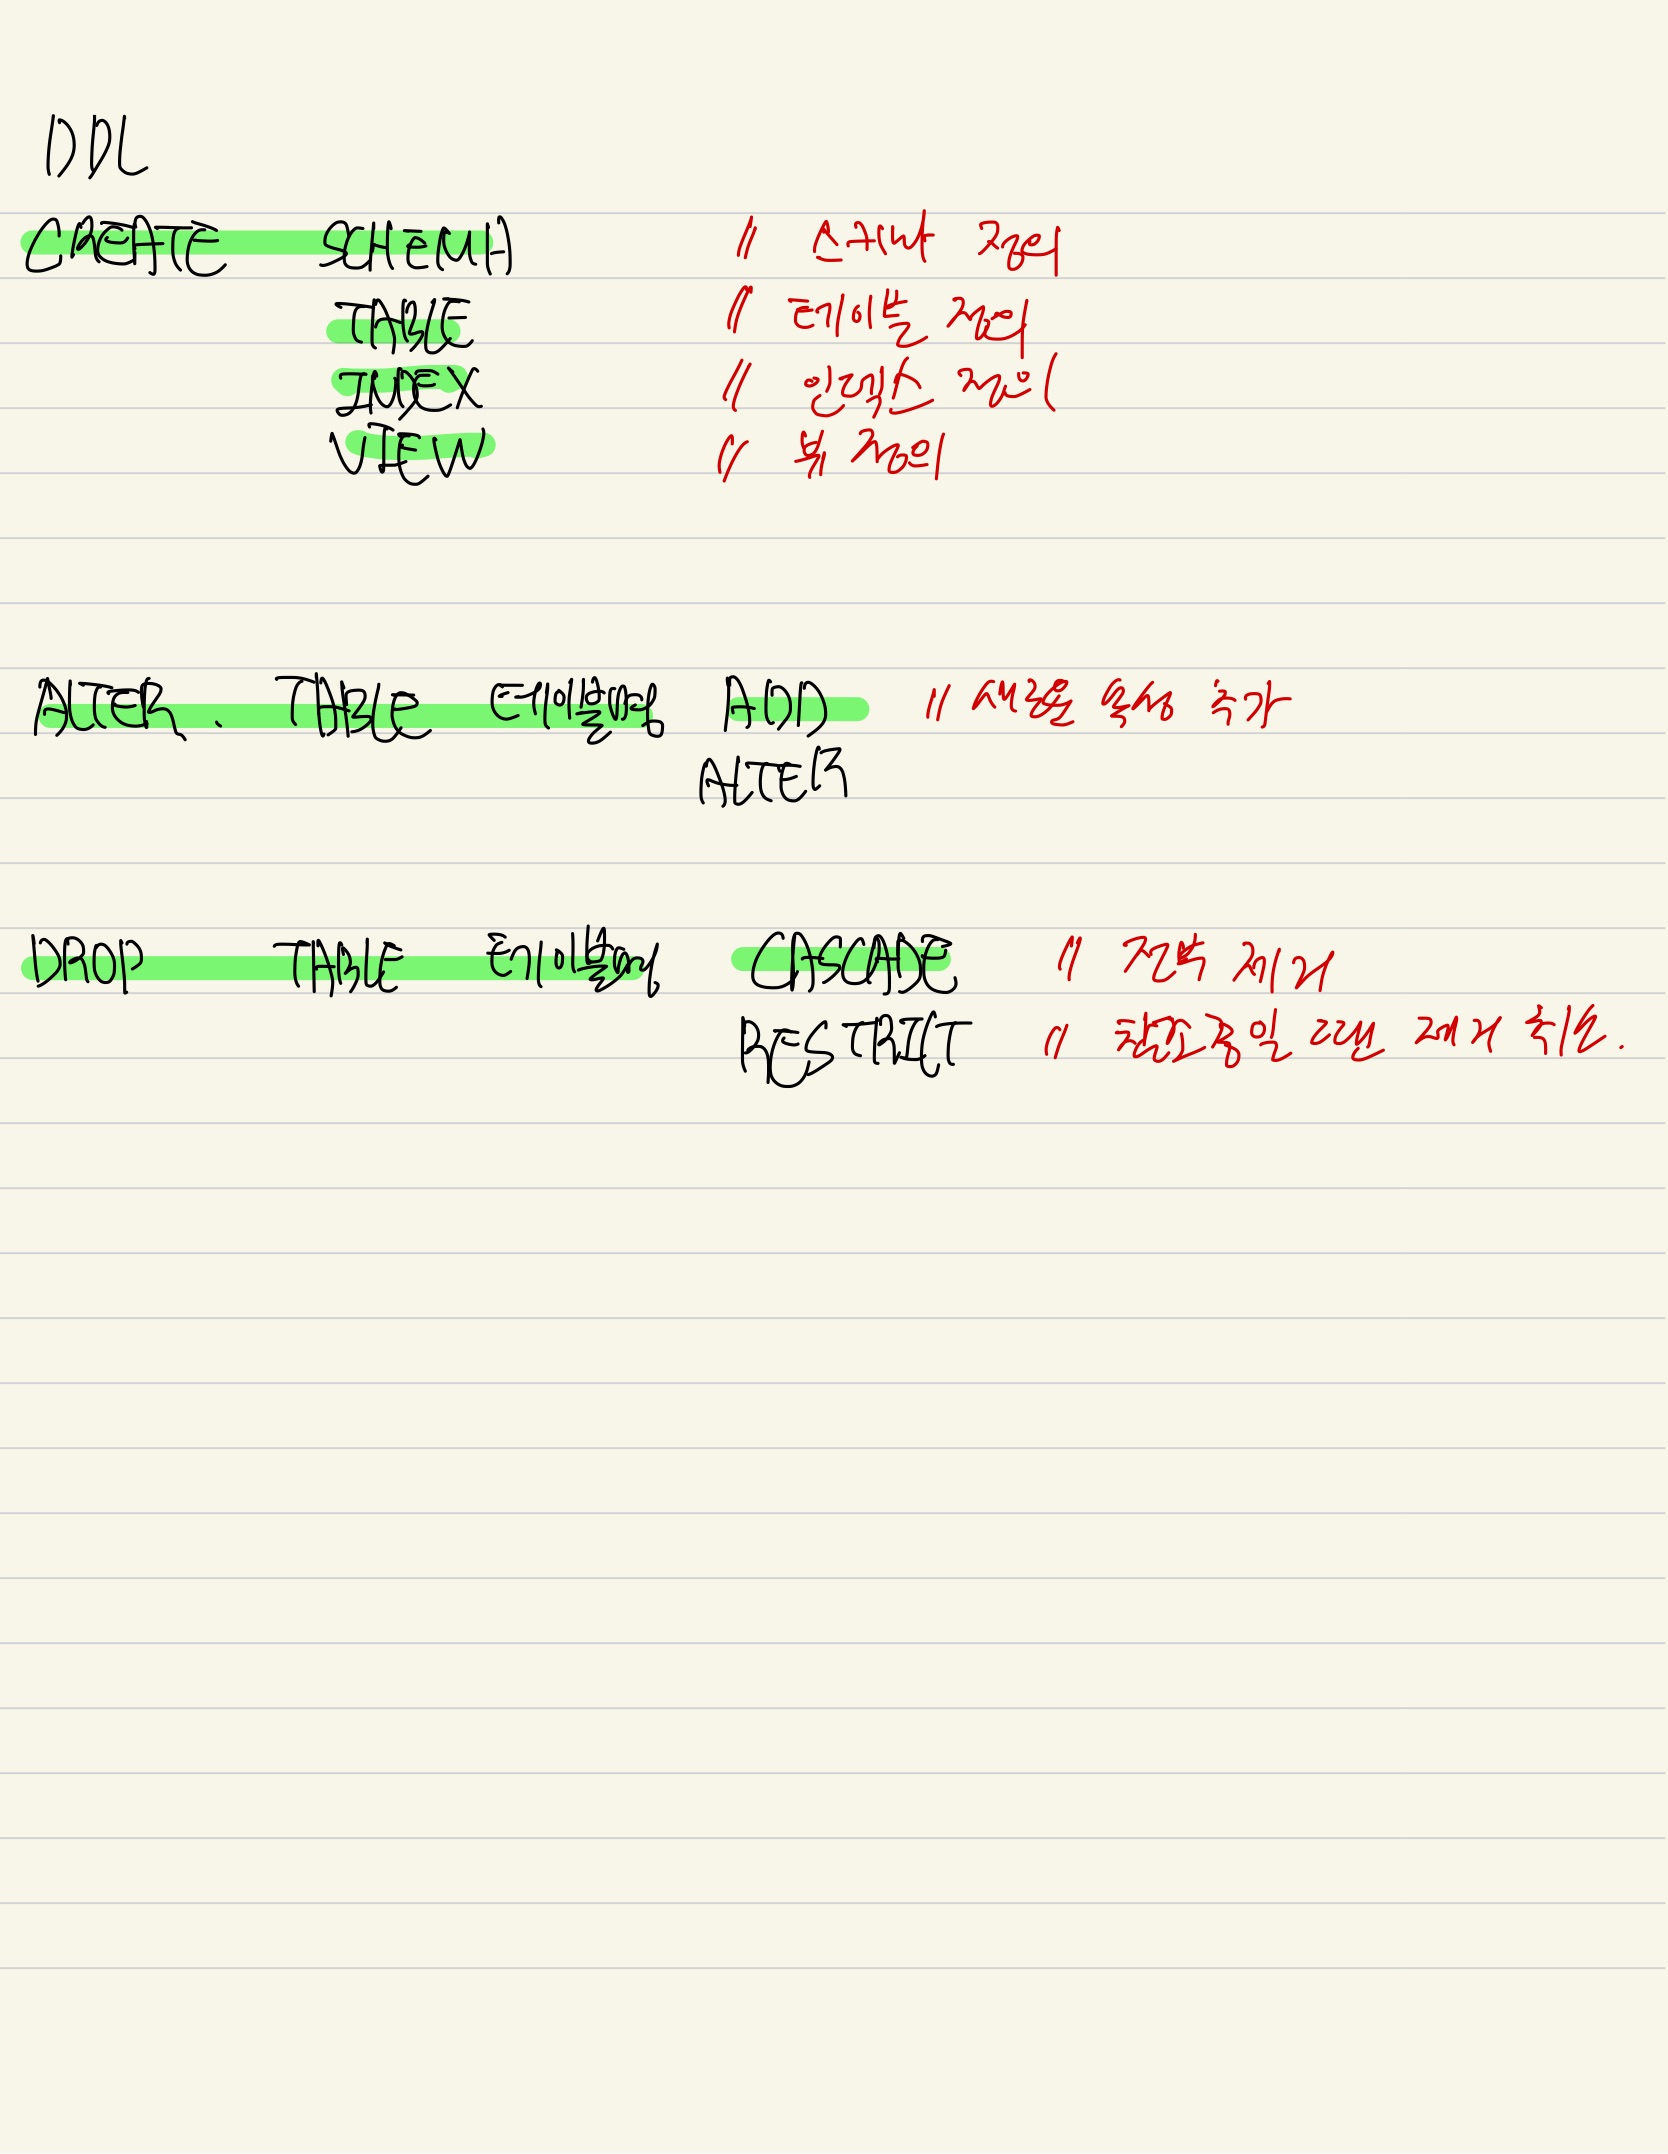 DDL
CREATE SCHEMA // 스키마 정의
TABLE // 테이블 정의
INDEX // 인덱스 정의
VIEW // 뷰 정의
ALTER. TABLE 테이블명 ADD // 새로운 속성 추가
ALTER
DROP TABLE 테이블명 CASCADE // 전부 제거
RESTRICT // 참조중일 때만 제거 취소.